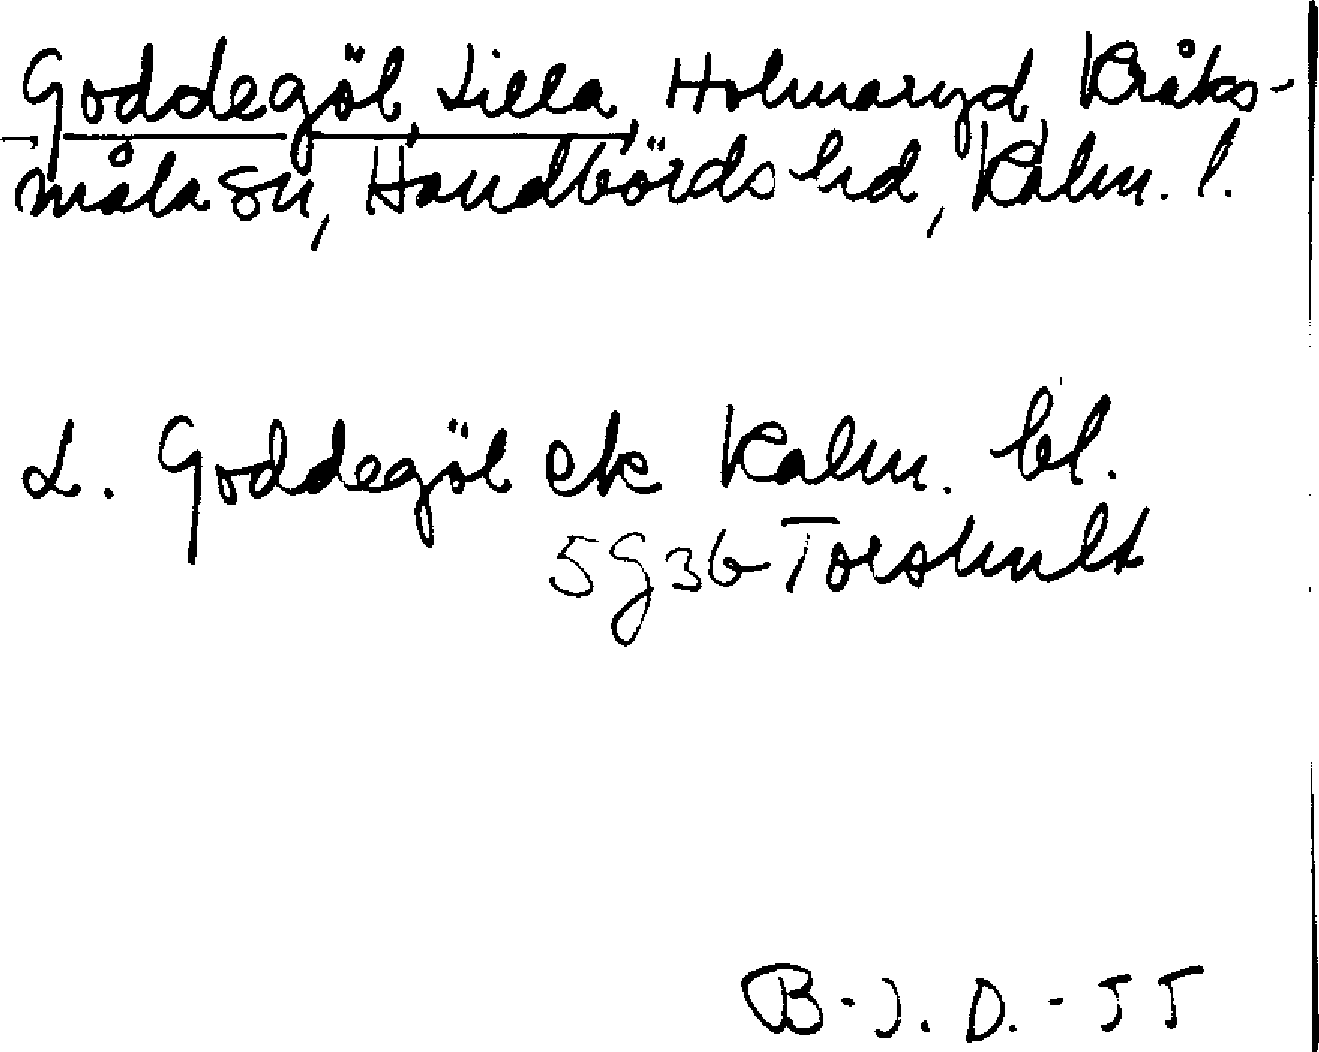 Goddegöl, Lilla, Holmaryd, Kråks-
måla sn, Handbörds hd, Kalm. l.
L. Goddegöl ek Kalm. bl.
5G3b Torshult
B-J. D. - 55